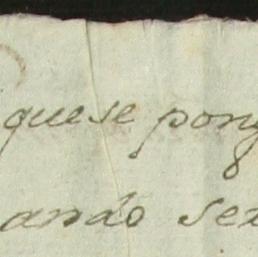 que se pong
ando ser